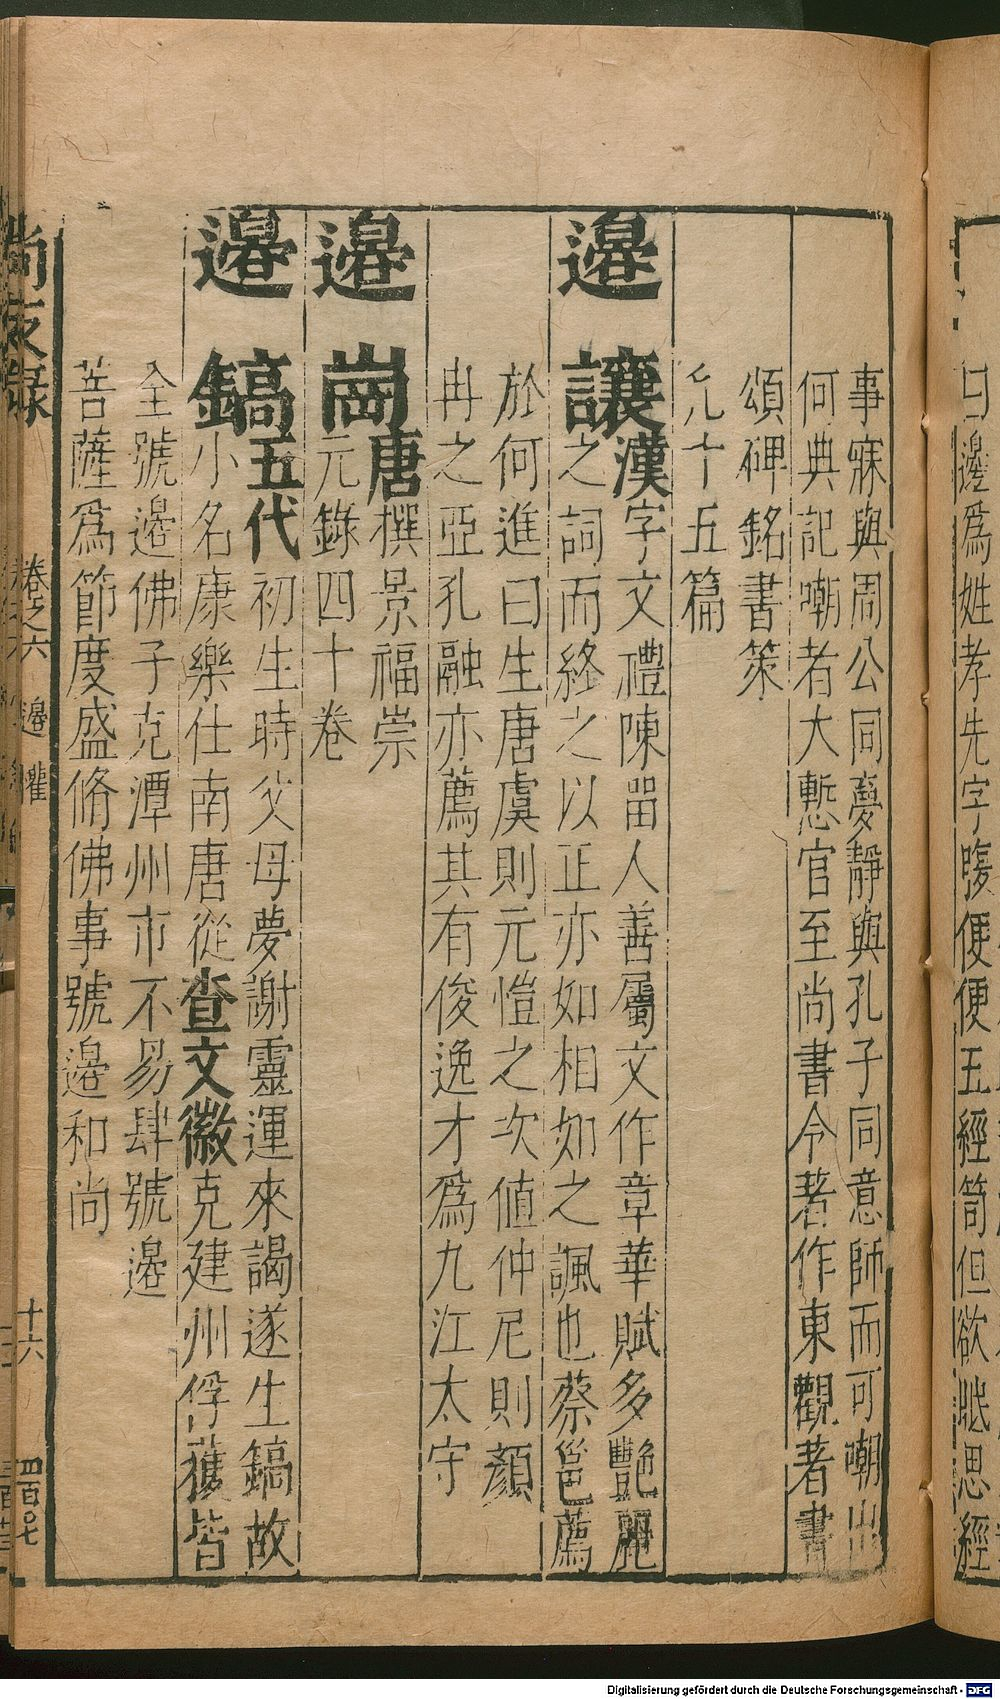 曰邊爲姓孝先字腹便便五經笥但欲眠思經
事寐與周公同夢靜與孔子同意師而可嘲出
何典記嘲者大慙官至尚書令著作東觀著書
頌碑銘書策
凡十五篇
邊讓漢字文禮陳畱人善屬文作章華賦多艷麗
之詞而終之以正亦如相如之諷也蔡邕薦
於何進曰生唐虞則元愷之次値仲尼則顏
冉之亞孔融亦薦其有俊逸才爲九江太守
邊崗唐撰景福崇
元錄四十卷
邊鎬五代初生時父母夢謝靈運來謁遂生鎬故
小名康樂仕南唐從查文徽克建州俘獲皆
全號邊佛子克潭州市不易肆號邊
菩薩爲節度盛脩佛事號邊和尚
尚友錄 卷之六 邊 十六 四百〇七
Digitalisierung gefördert durch die Deutsche Forschungsgemeinschaft - DFG